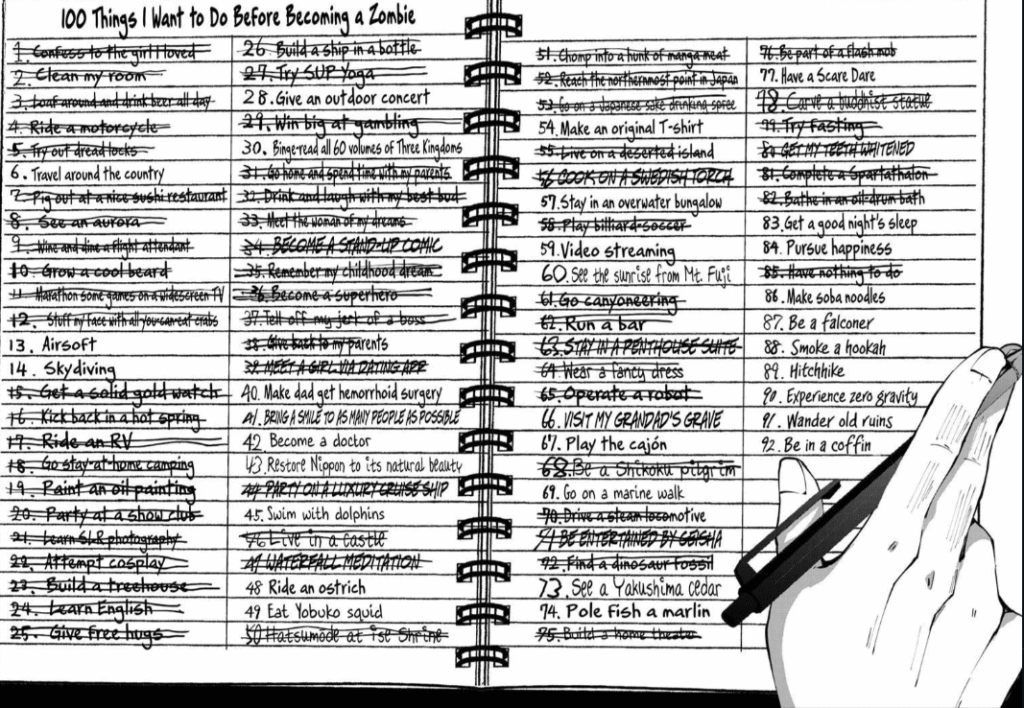 100 Things I Want to Do Before Becoming a Zombie
1. Confess to the girl I loved
2. Clean my room
3. Loaf around and drink beer all day
4. Ride a motorcycle
5. Try out dreadlocks
6. Travel around the country
7. Pig out at a nice sushi restaurant
8. See an aurora
9. Wine and dine a flight attendant
10. Grow a cool beard
11. Marathon some games on a widescreen TV
12. Stuff my face with all-you-can-eat crabs
13. Airsoft
14. Skydiving
15. Get a solid gold watch
16. Kick back in a hot spring
17. Ride an RV
18. Go stay-at-home camping
19. Paint an oil painting
20. Party at a show club
21. Learn SLR photography
22. Attempt cosplay
23. Build a treehouse
24. Learn English
25. Give free hugs
26. Build a ship in a bottle
27. Try SUP Yoga
28. Give an outdoor concert
29. Win big at gambling
30. Binge-read all 60 volumes of Three Kingdoms
31. Go home and spend time with my parents
32. Drink and laugh with my best bud
33. Meet the woman of my dreams
34. BECOME A STAND-UP COMIC
35. Remember my childhood dream
36. Become a superhero
37. Tell off my jerk of a boss
38. Give back to my parents
39. MEET A GIRL VIA DATING APP
40. Make dad get hemorrhoid surgery
41. BRING A SMILE TO AS MANY PEOPLE AS POSSIBLE
42 Become a doctor
43. Restore Nippon to its natural beauty
44. PARTY ON A LUXURY CRUISE SHIP
45. Swim with dolphins
46 Live in a castle
47 WATERFALL MEDITATION
48 Ride an ostrich
49 Eat Yobuko squid
50 Hatsumode at Ise Shrine
51. Chomp into a hunk of manga meat
52. Reach the northernmost point in Japan
53. Go on a Japanese sake drinking spree
54. Make an original T-shirt
55. Live on a deserted island
56 COOK ON A SWEDISH TORCH
57. Stay in an overwater bungalow
58. Play billiard-soccer
59. Video streaming
60. See the sunrise from Mt. Fuji
61. Go canyoneering
62. Run a bar
63. STAY IN A PENTHOUSE SUITE
64 Wear a fancy dress
65. Operate a robot
66. VISIT MY GRANDAD'S GRAVE
67. Play the cajón
68. Be a Shikoku pilgrim
69. Go on a marine walk
70. Drive a steam locomotive
71 BE ENTERTAINED BY GEISHA
72. Find a dinosaur fossil
73. See a Yakushima cedar
74. Pole fish a marlin
75. Build a home theater
76. Be part of a flash mob
77. Have a Scare Dare
78. Carve a buddhist statue
79. Try Fasting
80 GET MY TEETH WHITENED
81. Complete a Spartathalon
82. Bathe in an oil-drum bath
83. Get a good night's sleep
84. Pursue happiness
85. Have nothing to do
86. Make soba noodles
87. Be a falconer
88. Smoke a hookah
89. Hitchhike
90. Experience zero gravity
91. Wander old ruins
92. Be in a coffin